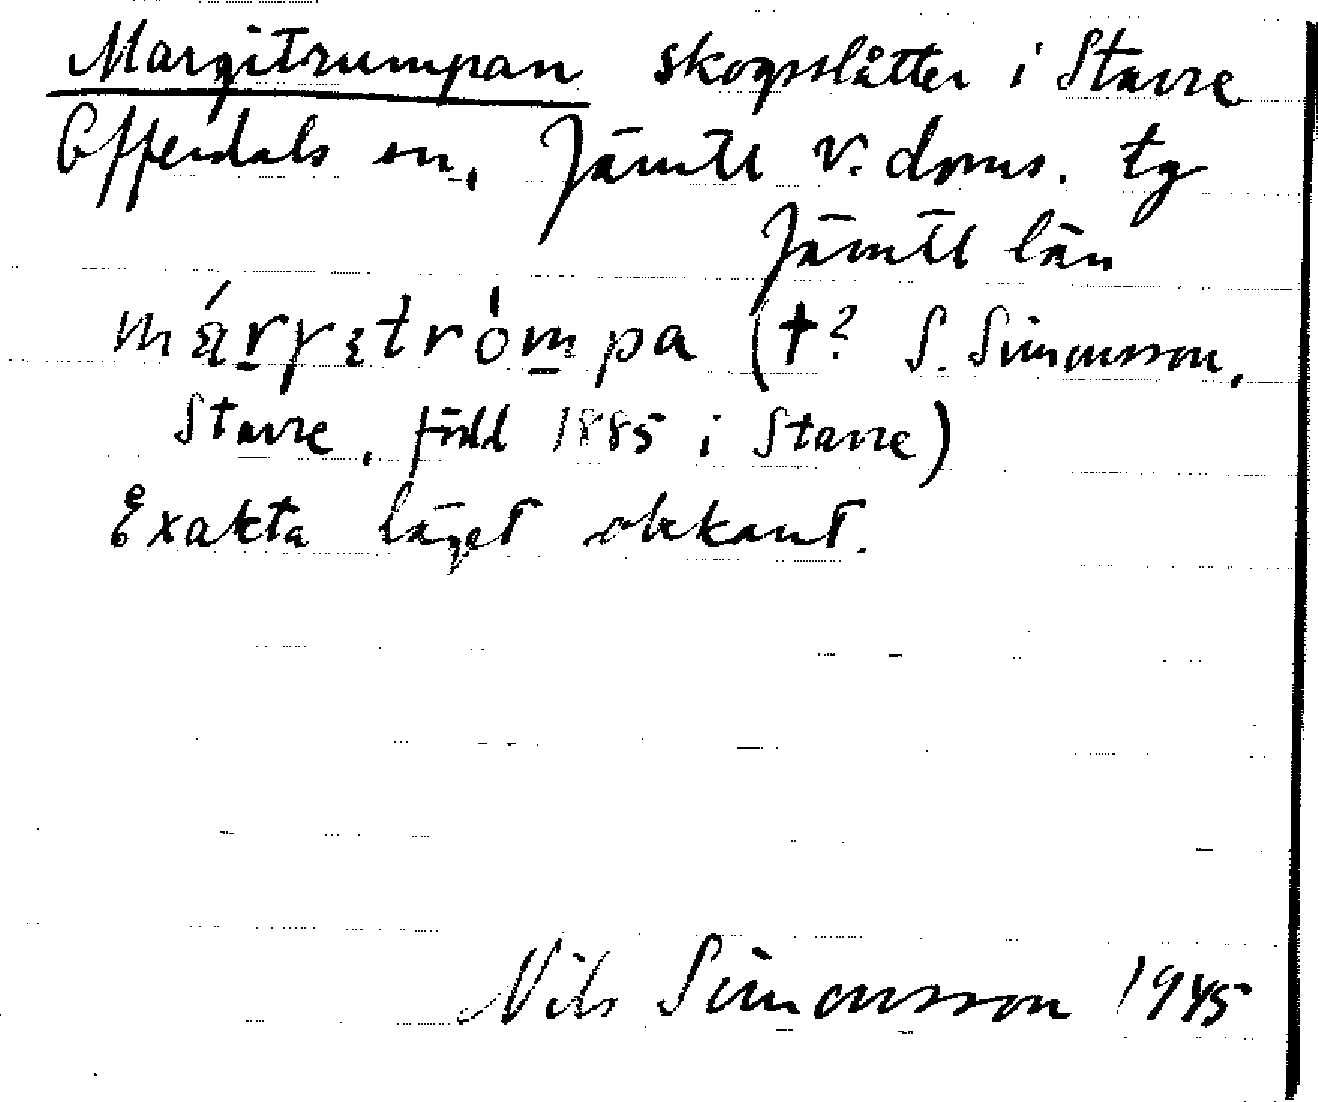 Margitrumpan skogsslåtter i Stavre
Offerdals sn, Jämtl v. doms. tg
Jämtl län
márgetrómpa (†? S. Simonsson,
Stavre, född 1885 i Stavre)
Exakta läget okkant.
Nils Simonsson 1945